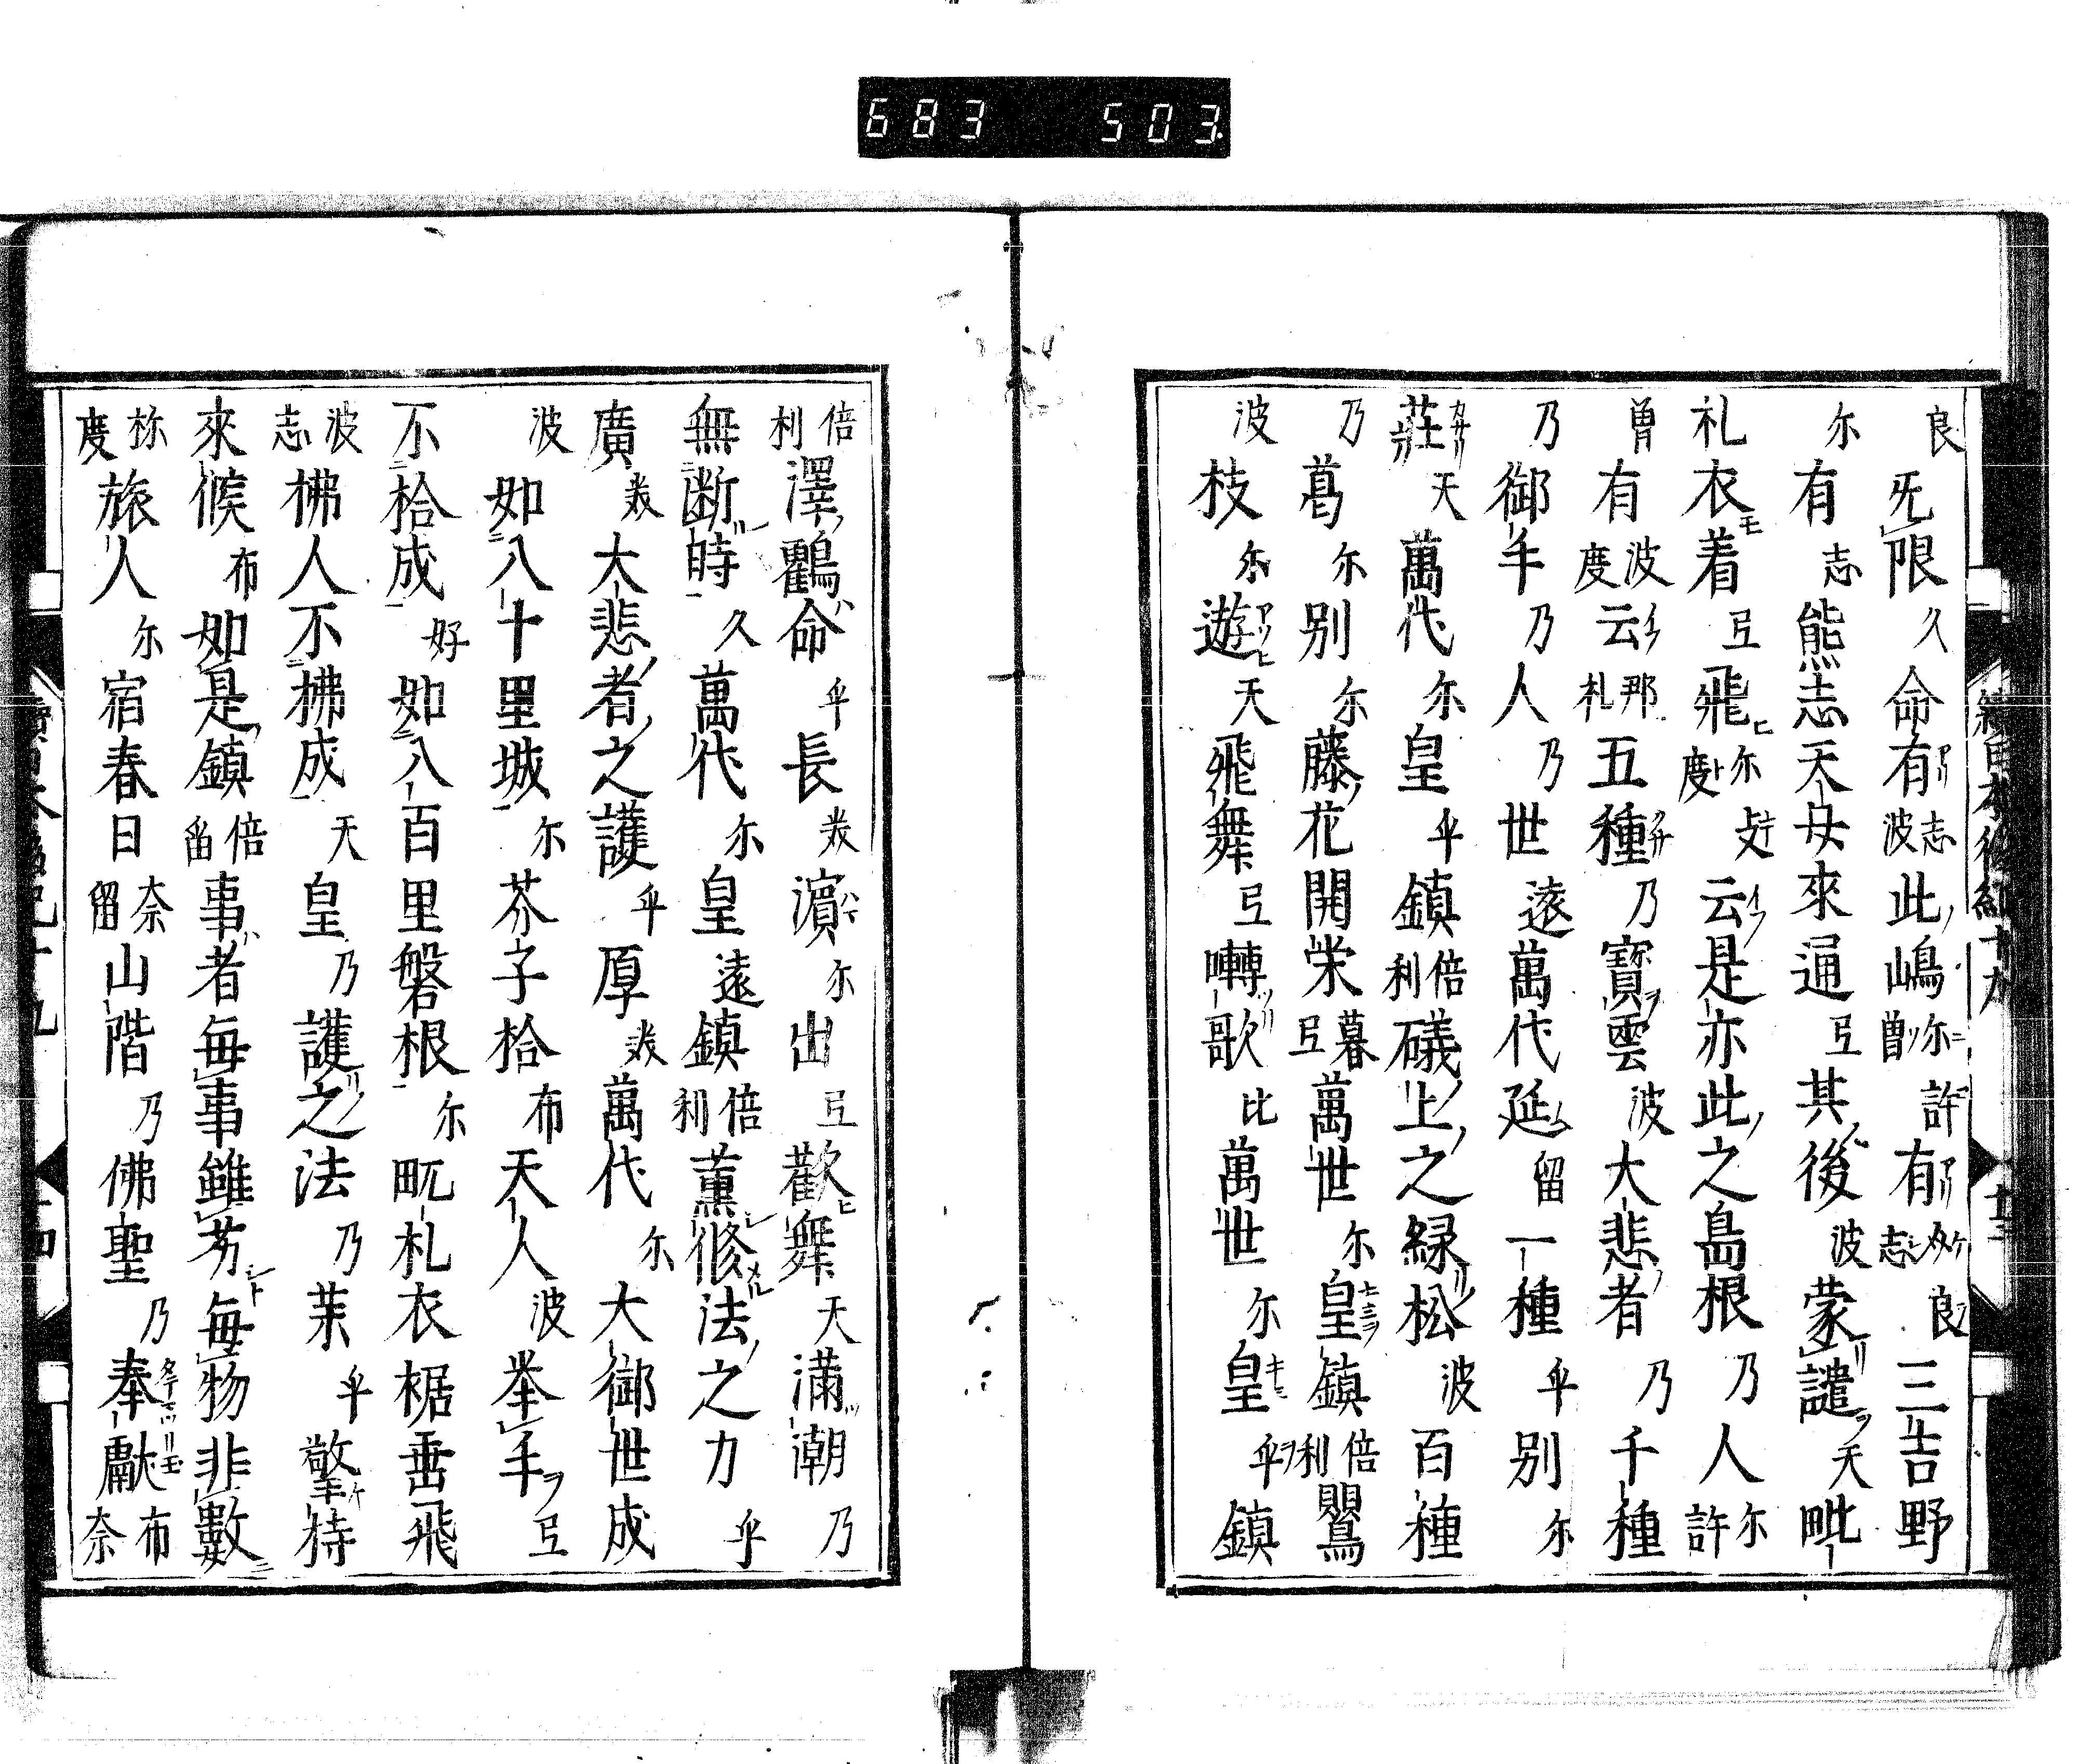 683 503
良无限久命有志波此嶋尓曽許有介志良三吉野
尓有志熊志天女來通弖其後波蒙譴天毗
礼衣着弖飛尓度支云是亦此之島根乃人尓許
曽有波度云那礼五種乃寳雲波大悲者乃千種
乃御手乃人乃世遠萬代延留一種乎別尓
莊天萬代尓皇乎鎮倍利礒上之緑松波百種
乃葛尓別尓藤花開栄弖暮萬世尓皇鎮倍利鸎
波枝尓遊天飛舞弖囀歌比萬世尓皇乎鎮
倍利澤鸖命乎長美濵尓出弖歡舞天満潮乃
無断時久萬代尓皇遠鎮倍利薫修法之力乎
廣美大悲者之護乎厚美萬代尓大御世成
波如八十里城尓芥子拾布天人波挙手弖
不拾成好如八百里磐根尓毗礼衣裾垂飛
波志拂人不拂成天皇乃護之法乃茉乎擎持
來候布如是鎮倍留事者毎事雖芳毎物非數
祢度旅人尓宿春日奈留山階乃佛聖乃奉獻布奈
續日本後紀十九 十三